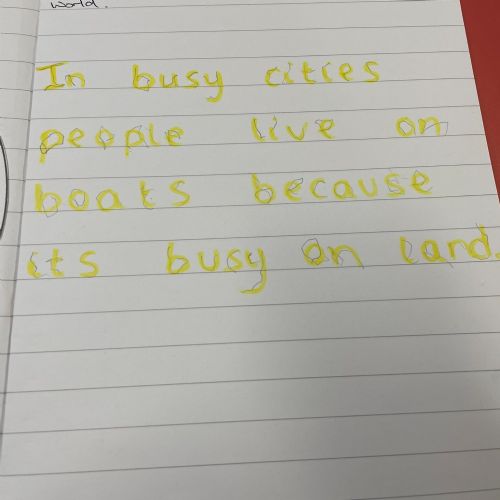 world.
In busy cities
people live on
boats because
its busy on land.